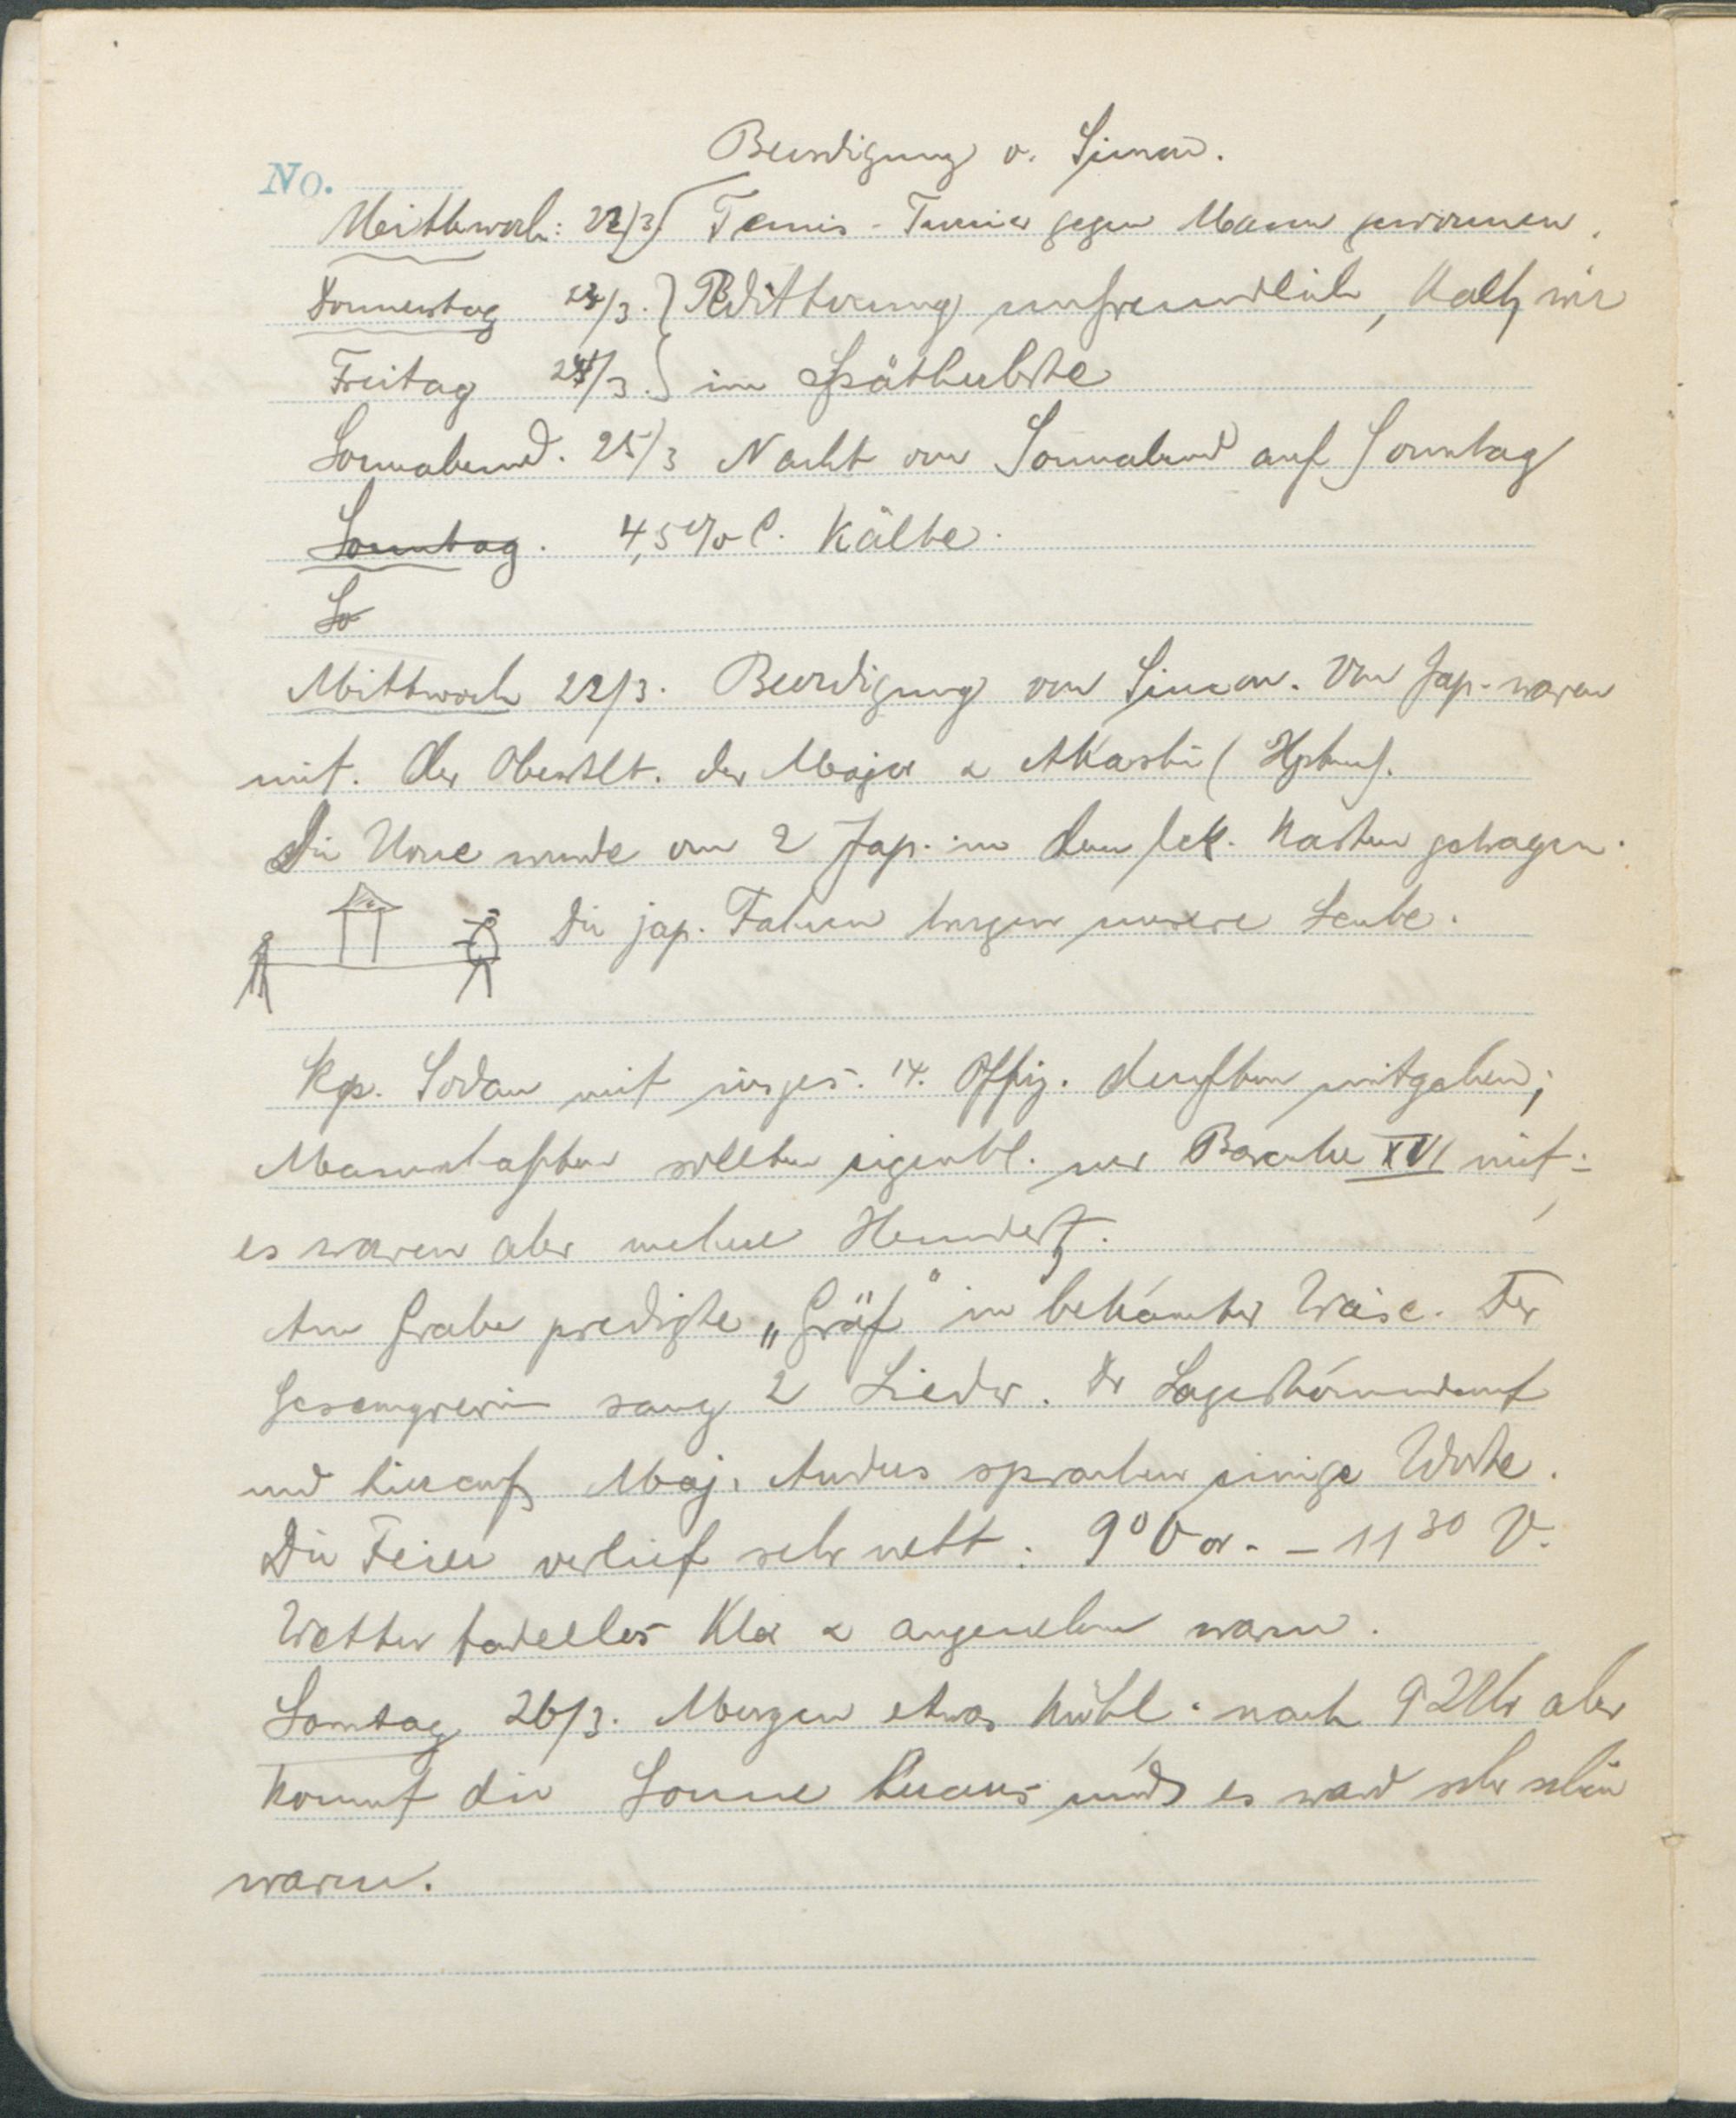 Beerdigung v. Simon.
No.
Mittwoch: 22/3. Tennis-Turnier gegen Mann gewonnen.
Donnerstag 23/3. } Witterung unfreundlich, Kalt, wie
Freitag 24/3. } im Spätherbste
Sonnabend. 25/3 Nacht von Sonnabend auf Sonntag
Sonntag. 4,5% C. Kälte.
So
Mittwoch 22/3. Beerdigung von Simon. Von Jap. waren
mit. Der Oberstlt. der Major & Akashi (Hptm).
Die Urne wurde von 2 Jap. in dem Kasten getragen.
Die jap. Fahnen trugen unsere Leute.
Kp. Sodan mit insges. 14. Offiz. durften mitgehen;
Mannschaften sollten eigentl. nur Baracke XVI mit;
es waren aber mehrere Hundert.
Am Grabe predigte „Gräf" in bekannter Weise. Der
Gesangverein sang 2 Lieder. Der Lagerkommandant
und hierauf Maj. Anders sprachen einige Worte.
Die Feier verlief sehr nett. 9⁰ Vor. - 11³⁰ V.
Wetter tadellos Klar & angenehm warm.
Sonntag 26/3. Morgen etwas kühl. nach 9 Uhr aber
kommt die Sonne heraus und es ward sehr schön
warm.